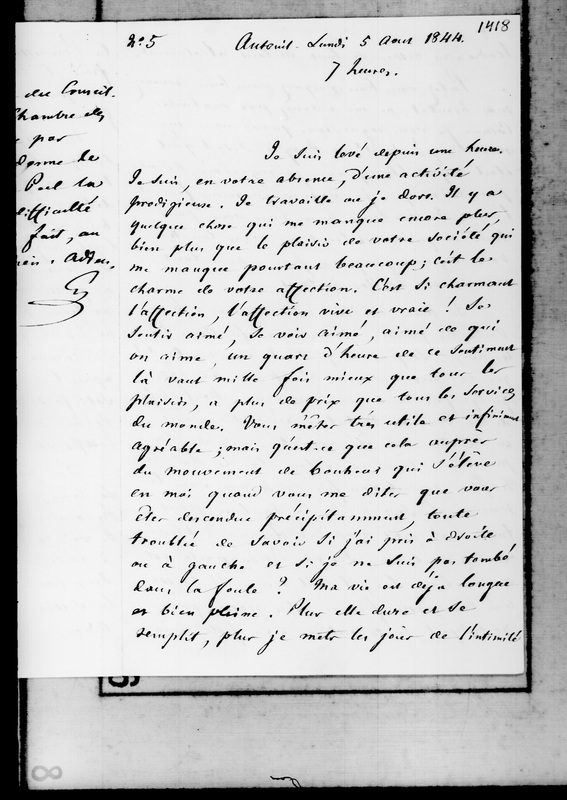 1418
N° 5
Auteuil - Lundi 5 Aout 1844.
7 heures.
du Conseil.
Chambre des
par
forme de
Peel la
difficulté
fait, au
Adieu.
Je suis levé depuis une heure.
Je suis, en votre absence, d'une activité
prodigieuse. Je travaille ou je dors. Il y a
quelque chose qui me manque encore plus,
bien plus que le plaisir de votre société qui
me manque pourtant beaucoup ; c'est le
charme de votre affection. C'est si charmant
l'affection, l'affection vive et vraie ! Se
sentir aimé, se voir aimé, aimé de qui
on aime, un quart d'heure de ce sentiment
là vaut mille fois mieux que tous les
plaisirs, a plus de prix que tous les services
du monde. Vous m'êtes très utile et infiniment
agréable ; mais qu'est-ce que cela auprès
du mouvement de bonheur qui s'élève
en moi quand vous me dites que vous
êtes descendue précipitamment, toute
troublée de savoir si j'ai pris à droite
ou à gauche et si je ne suis pas tombé
dans la foule ? Ma vie est déjà longue
et bien pleine. Plus elle dure et se
remplit, plus je mets les joies de l'intimité
8